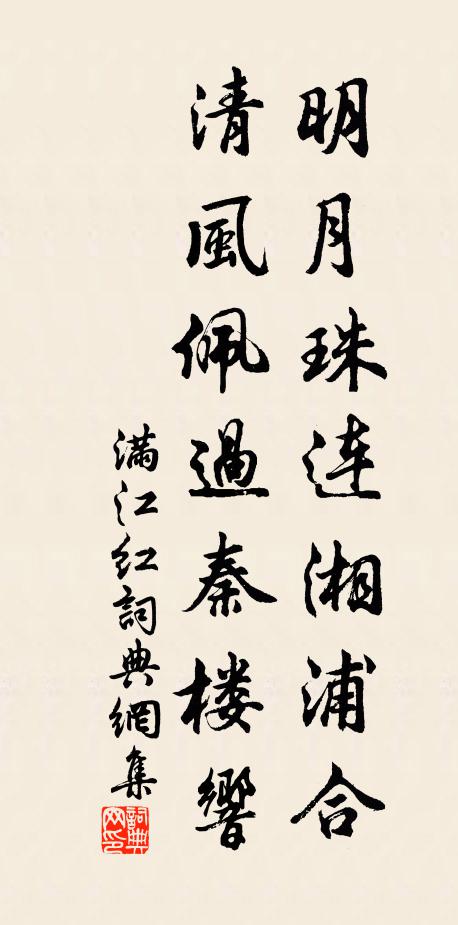 明月珠连湘浦合
清風佩過秦楼響
满江红詞典網集
詞典网印